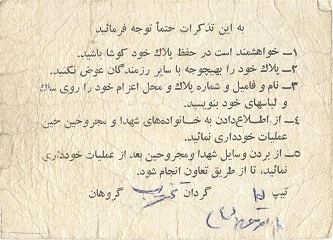 به این تذکرات حتماً توجه فرمائید
۱ــ خواهشمند است در حفظ پلاك خود كوشا باشید.
۲ــ پلاك خود را بهیچوجه با سایر رزمندگان عوض نكنید.
۳ــ نام و فامیل و شماره پلاك و محل اعزام خود را روی ساك
و لباسهای خود بنویسید.
٤ــ از اطلاع‌دادن به خانواده‌های شهدا و مجروحین حین
عملیات خودداری نمائید.
۵ــ از بردن وسایل شهدا ومجروحین بعد از عملیات خودداری
نمائید، تا از طریق تعاون انجام شود.
تیپ گردان تخریب گروهان